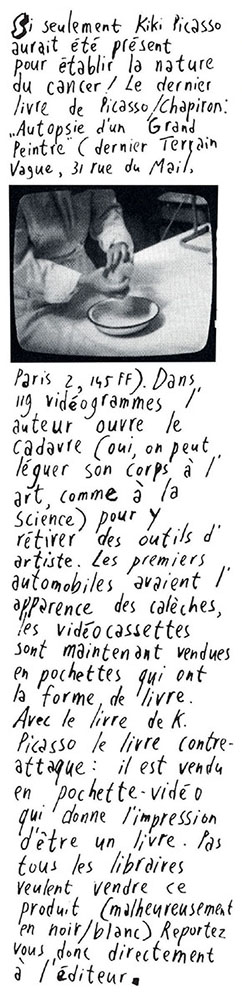 Si seulement Kiki Picasso
aurait été présent
pour établir la nature
du cancer! Le dernier
livre de Picasso/Chapiron:
„Autopsie d'un Grand
Peintre" (dernier Terrain
Vague, 31 rue du Mail,
Paris 2, 145 FF). Dans
119 vidéogrammes l'
auteur ouvre le
cadavre (oui, on peut
léguer son corps à l'
art, comme à la
science) pour y
rétirer des outils d'
artiste. Les premiers
automobiles avaient l'
apparence des calèches,
les vidéocassettes
sont maintenant vendues
en pochettes qui ont
la forme de livre.
Avec le livre de K.
Picasso le livre contre-
attaque: il est vendu
en pochette-vidéo
qui donne l'impression
d'être un livre. Pas
tous les libraires
veulent vendre ce
produit (malheureusement
en noir/blanc) Reportez
vous donc directement
à l'éditeur.